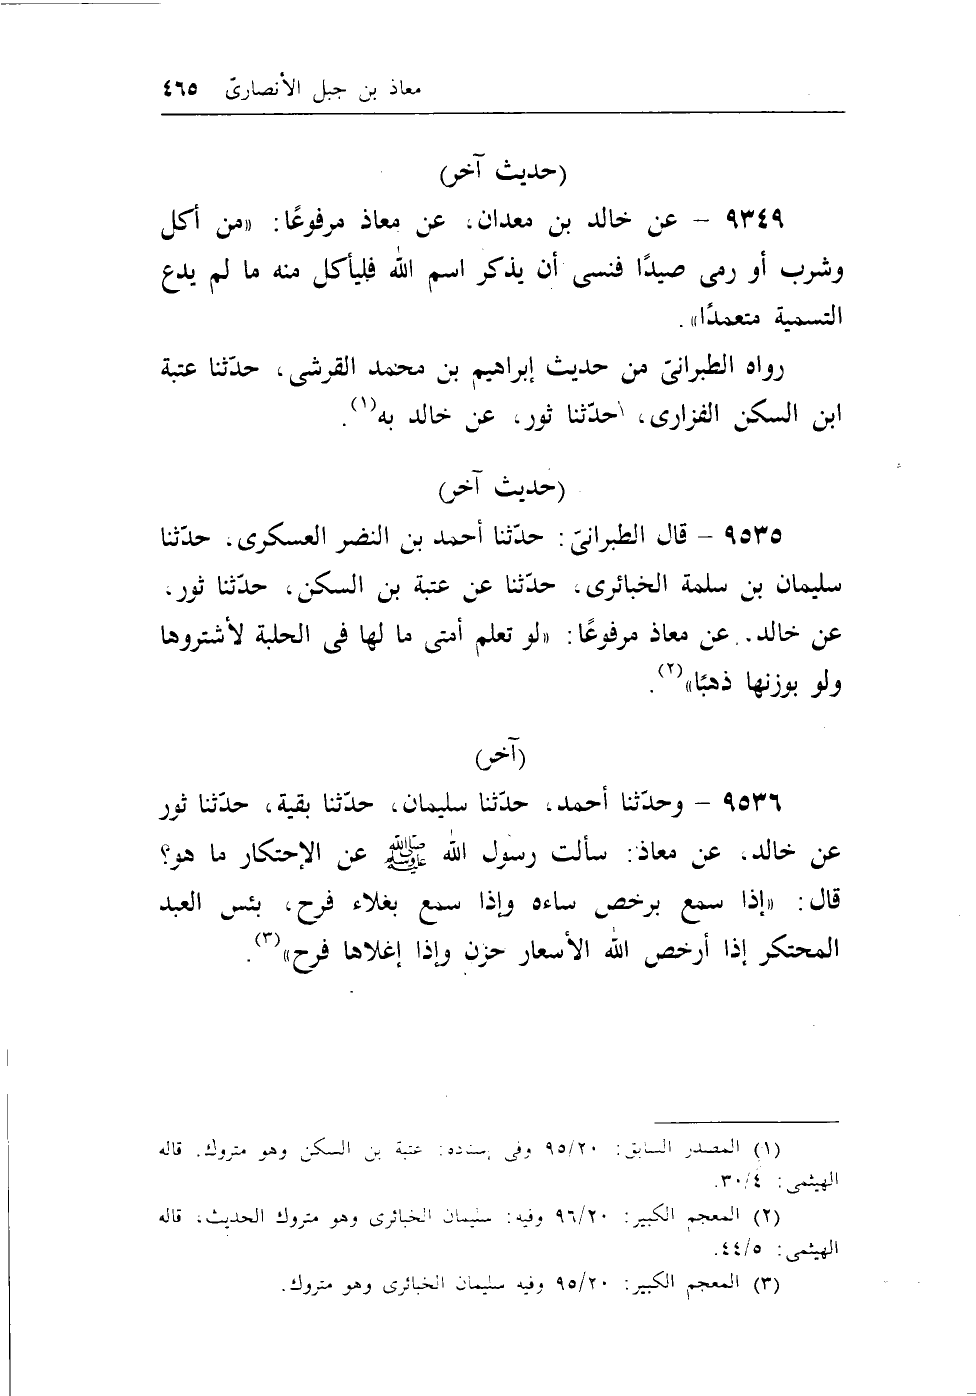 معاذ بن جبل الأنصارىّ ٤٦٥
(حديث آخر)
٩٣٤٩ – عن خالد بن معدان، عن معاذ مرفوعًا: «من أكل
وشرب أو رمى صيدًا فنسى أن يذكر اسم الله فليأكل منه ما لم يدع
التسمية متعمدًا».
رواه الطبرانىّ من حديث إبراهيم بن محمد القرشى، حدّثنا عتبة
ابن السكن الفزارى، حدّثنا ثور، عن خالد به(١).
(حديث آخر)
٩٥٣٥ – قال الطبرانىّ: حدّثنا أحمد بن النضر العسكرى، حدّثنا
سليمان بن سلمة الخبائرى، حدّثنا عن عتبة بن السكن، حدّثنا ثور،
عن خالد، عن معاذ مرفوعًا: «لو تعلم أمتى ما لها فى الحلبة لأشتروها
ولو بوزنها ذهبًا»(٢).
(آخر)
٩٥٣٦ – وحدّثنا أحمد، حدّثنا سليمان، حدّثنا بقية، حدّثنا ثور
عن خالد، عن معاذ: سألت رسول الله ﷺ عن الإحتكار ما هو؟
قال: «إذا سمع برخص ساءه وإذا سمع بغلاء فرح، بئس العبد
المحتكر إذا أرخص الله الأسعار حزن وإذا إغلاها فرح»(٣).
(١) المصدر السابق: ٩٥/٢٠ وفى إسناده: عتبة بن السكن وهو متروك. قاله
الهيثمى: ٣٠/٤.
(٢) المعجم الكبير: ٩٦/٢٠ وفيه: سليمان الخبائرى وهو متروك الحديث، قاله
الهيثمى: ٤٤/٥.
(٣) المعجم الكبير: ٩٥/٢٠ وفيه سليمان الخبائرى وهو متروك.